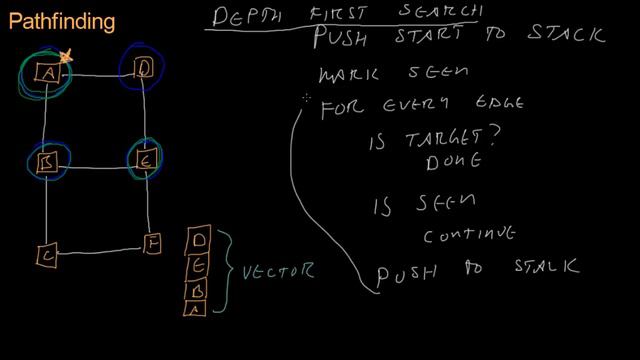 Pathfinding
DEPTH FIRST SEARCH
PUSH START TO STACK
MARK SEEN
FOR EVERY EDGE
IS TARGET?
DONE
IS SEEN
CONTINUE
PUSH TO STACK
A
D
B
E
C
F
D
E
B
A
VECTOR